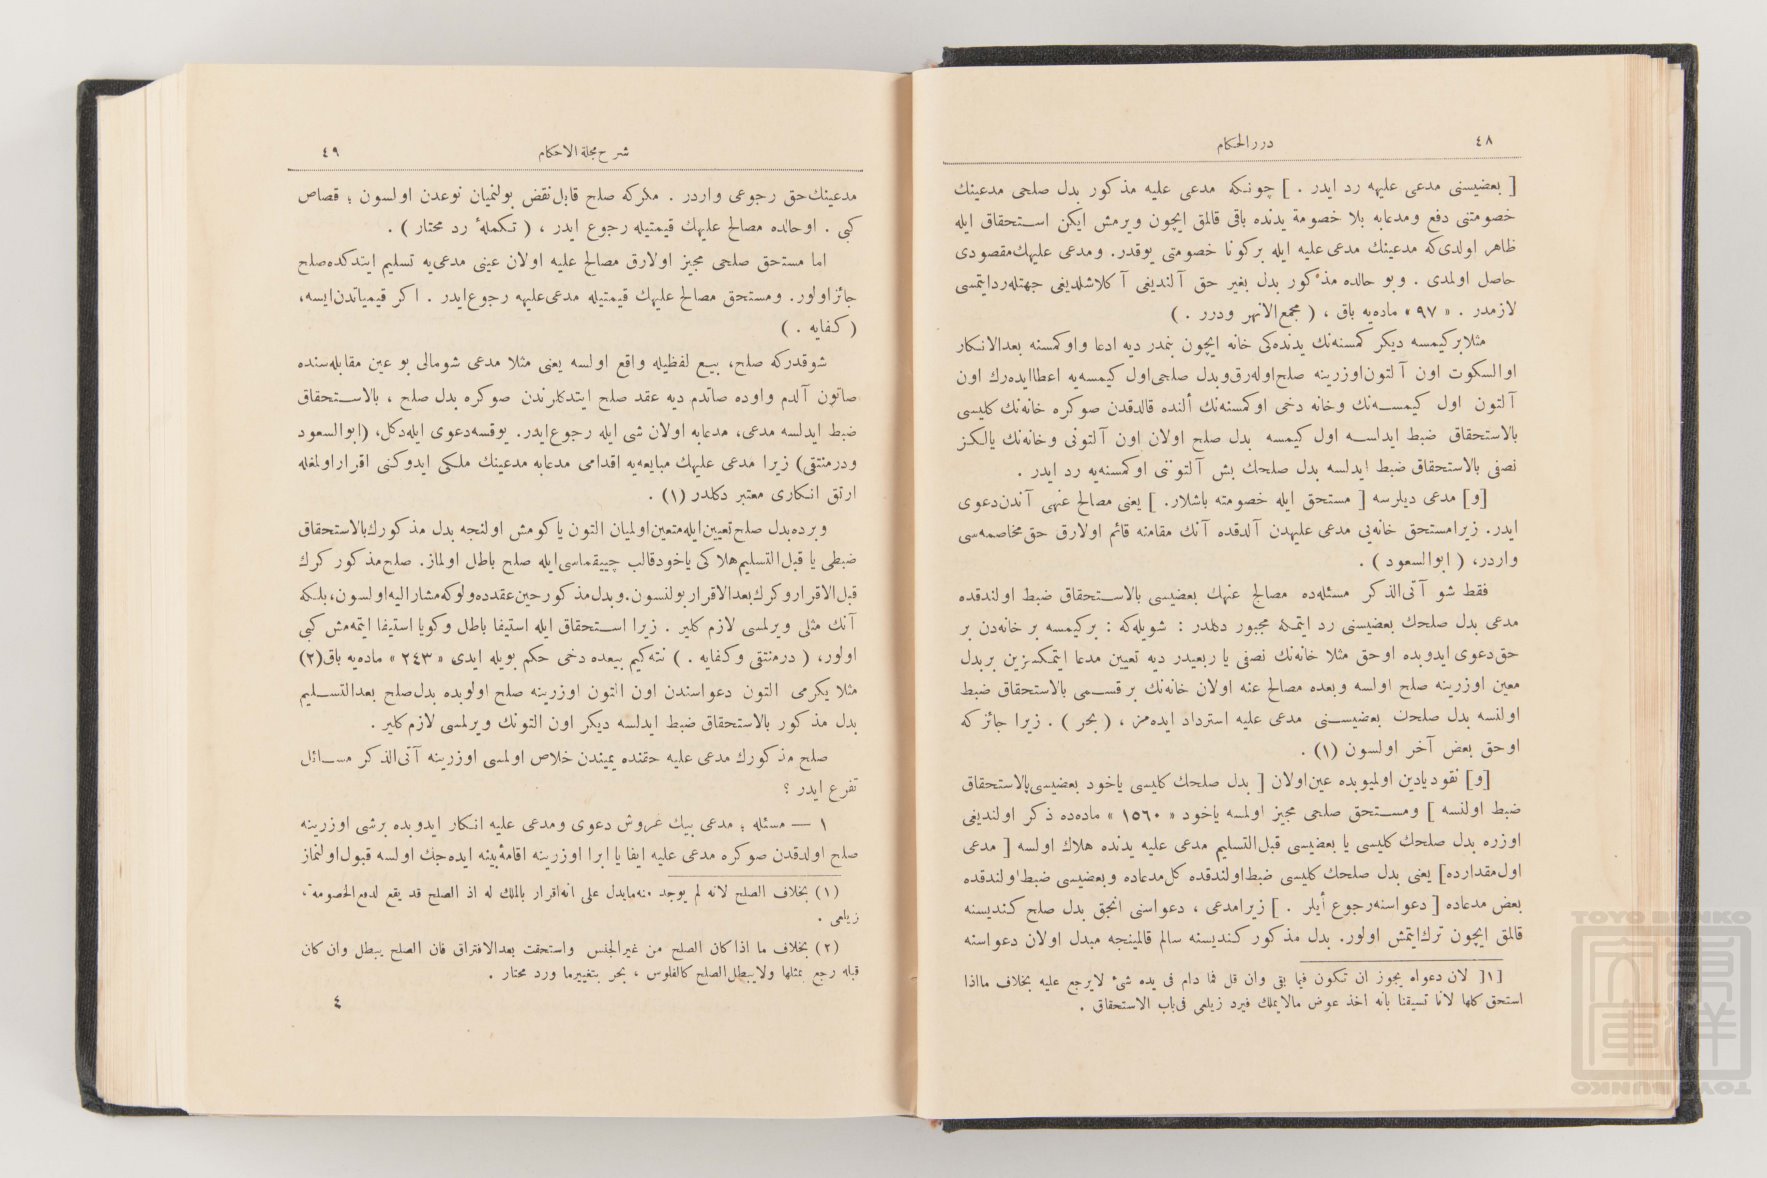 ٤٨
درر الحكام
[ بعضيسنى مدعى عليهه رد ايدر . ] چونكه مدعى عليه مذكور بدل صلحى مدعينك
خصومتنى دفع ومدعابه بلا خصومة يدنده باقى قالمق ايچون ويرمش ايكن استحقاق ايله
ظاهر اولدى كه مدعينك مدعى عليه ايله بركونا خصومتى يوقدر. ومدعى عليهك مقصودى
حاصل اولمدى . وبو حالده مذكور بدل بغير حق آلنديغى آكلاشلديغى جهتله رد ايتمسى
لازمدر . « ٩٧ » ماده يه باق ، ( مجمع الانهر ودرر . )
مثلا بر كيمسه ديكر كمسنه نك يدنده كى خانه ايچون بنمدر ديه ادعا واوكمسنه بعد الانكار
او السكوت اون آلتون اوزرينه صلح اوله رق وبدل صلحى اول كيمسه يه اعطا ايده رك اون
آلتون اول كيمسه نك وخانه دخى اوكمسنه نك ألنده قالدقدن صوكره خانه نك كليسى
بالاستحقاق ضبط ايدلسه اول كيمسه بدل صلح اولان اون آلتونى وخانه نك يالكز
نصفى بالاستحقاق ضبط ايدلسه بدل صلحك بش آلتوننى اوكمسنه يه رد ايدر .
[و] مدعى ديلرسه [ مستحق ايله خصومته باشلار. ] يعنى مصالح عنهى آندن دعوى
ايدر. زيرا مستحق خانه يى مدعى عليهدن آلدقده آنك مقامنه قائم اولارق حق مخاصمه سى
واردر، ( ابو السعود ) .
فقط شو آتى الذكر مسئله ده مصالح عنهك بعضيسى بالاستحقاق ضبط اولندقده
مدعى بدل صلحك بعضيسنى رد ايتمكه مجبور دكلدر : شويله كه : بر كيمسه بر خانه دن بر
حق دعوى ايدوبده اوحق مثلا خانه نك نصفى يا ربعيدر ديه تعيين مدعا ايتمكسزين بر بدل
معين اوزرينه صلح اولسه وبعده مصالح عنه اولان خانه نك بر قسمى بالاستحقاق ضبط
اولنسه بدل صلحك بعضيسنى مدعى عليه استرداد ايده مز ، ( بحر ) . زيرا جائزكه
اوحق بعض آخر اولسون (١) .
[و] نقود يادين اولميوبده عين اولان [ بدل صلحك كليسى ياخود بعضيسى بالاستحقاق
ضبط اولنسه ] ومستحق صلحى مجيز اولمسه ياخود « ١٥٦٠ » ماده ده ذكر اولنديغى
اوزره بدل صلحك كليسى يا بعضيسى قبل التسليم مدعى عليه يدنده هلاك اولسه [ مدعى
اول مقدارده] يعنى بدل صلحك كليسى ضبط اولندقده كل مدعاده وبعضيسى ضبط اولندقده
بعض مدعاده [ دعواسنه رجوع أيلر . ] زيرا مدعى ، دعواسنى انجق بدل صلح كنديسنه
قالمق ايچون ترك ايتمش اولور. بدل مذكور كنديسنه سالم قالمينجه مبدل اولان دعواسنه
[١] لان دعواه يجوز ان تكون فيما بقى وان قل فما دام فى يده شىء لايرجع عليه بخلاف مااذا
استحق كلها لانا تسيقنا بانه اخذ عوض مالايملك فيرد زيلعى فى باب الاستحقاق .
شرح مجلة الاحكام
٤٩
مدعينك حق رجوعى واردر . مكركه صلح قابل نقض بولنميان نوعدن اولسون ؛ قصاص
كبى . اوحالده مصالح عليهك قيمتيله رجوع ايدر ، ( تكملهٔ رد محتار ) .
اما مستحق صلحى مجيز اولارق مصالح عليه اولان عينى مدعى يه تسليم ايتدكده صلح
جائز اولور. ومستحق مصالح عليهك قيمتيله مدعى عليهه رجوع ايدر . اكر قيمياتدن ايسه،
( كفايه . )
شوقدركه صلح، بيع لفظيله واقع اولسه يعنى مثلا مدعى شومالى بو عين مقابله سنده
صاتون آلدم واوده صاتدم ديه عقد صلح ايتدكلرندن صوكره بدل صلح ، بالاستحقاق
ضبط ايدلسه مدعى، مدعابه اولان شى ايله رجوع ايدر. يوقسه دعوى ايله دكل، (ابو السعود
ودرمنتقى) زيرا مدعى عليهك مبايعه يه اقدامى مدعابه مدعينك ملكى ايدوكنى اقرار اولمغله
ارتق انكارى معتبر دكلدر (١) .
وبرده بدل صلح تعيين ايله متعين اولميان التون يا كومش اولنجه بدل مذكورك بالاستحقاق
ضبطى يا قبل التسليم هلاكى ياخود قالب چيقماسى ايله صلح باطل اولماز. صلح مذكور كرك
قبل الاقرار وكرك بعد الاقرار بولنسون. وبدل مذكور حين عقدده ولوكه مشار اليه اولسون، بلكه
آنك مثلى ويرلمسى لازم كلير . زيرا استحقاق ايله استيفا باطل وكويا استيفا ايتمه مش كبى
اولور، ( درمنتقى وكفايه . ) نته كيم بيعده دخى حكم بويله ايدى « ٢٤٣ » ماده يه باق(٢)
مثلا يكرمى التون دعواسندن اون التون اوزرينه صلح اولوبده بدل صلح بعد التسليم
بدل مذكور بالاستحقاق ضبط ايدلسه ديكر اون التونك ويرلمسى لازم كلير .
صلح مذكورك مدعى عليه حقنده يميندن خلاص اولمسى اوزرينه آتى الذكر مسائل
تفرع ايدر ؟
١ — مسئله ؛ مدعى بيك غروش دعوى ومدعى عليه انكار ايدوبده برشى اوزرينه
صلح اولدقدن صوكره مدعى عليه ايفا يا ابرا اوزرينه اقامهٔ بينه ايده جك اولسه قبول اولنماز
(١) بخلاف الصلح لانه لم يوجد منه مايدل على انه اقرار بالملك له اذ الصلح قد يقع لدفع الخصومة ،
زيلعى .
(٢) بخلاف ما اذا كان الصلح من غير الجنس واستحقت بعد الافتراق فان الصلح يبطل وان كان
قبله رجع بمثلها ولايبطل الصلح كالفلوس ، بحر بتغييرما ورد محتار .
٤
TOYO BUNKO